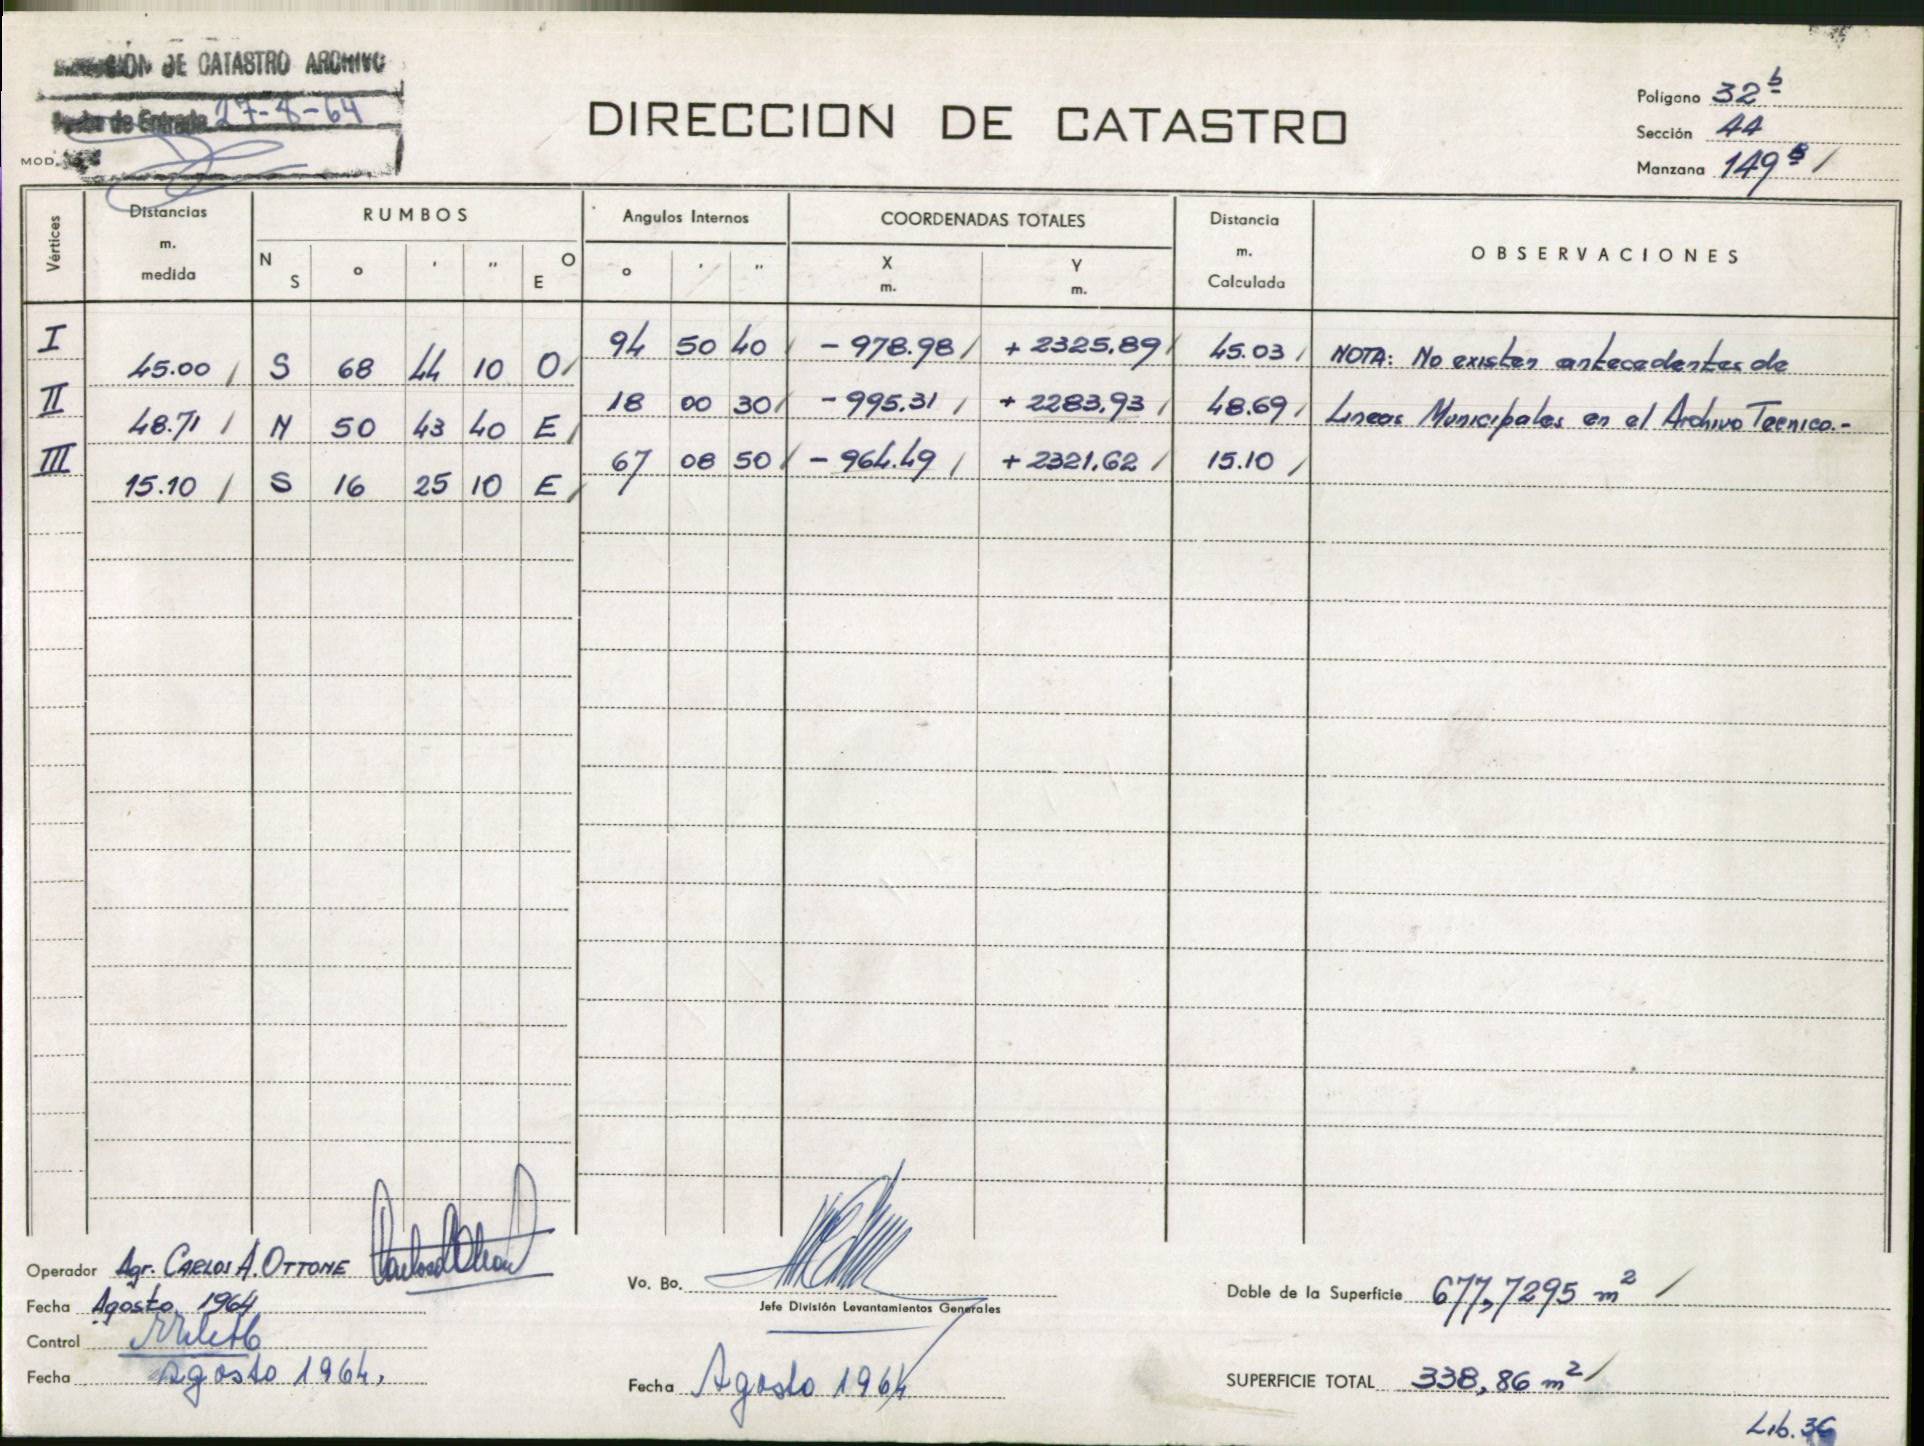 DE CATASTRO ARCHIVO
Fecha de Entrada 27-8-64
MOD.
DIRECCION DE CATASTRO
Polígono 32 b
Sección 44
Manzana 149 B /
Vértices
Distancias m. medida
RUMBOS
N S ° ' " O E
Angulos Internos
° ' "
COORDENADAS TOTALES
X m. Y m.
Distancia m. Calculada
OBSERVACIONES
I 94 50 40 / - 978.98 / + 2325.89 / 45.03 / NOTA: No existen antecedentes de
45.00 / S 68 44 10 O /
II 18 00 30 / - 995.31 / + 2283.93 / 48.69 / Lineas Municipales en el Archivo Tecnico.-
48.71 / N 50 43 40 E /
III 67 08 50 / - 964.49 / + 2321.62 / 15.10 /
15.10 / S 16 25 10 E /
Operador Agr. CARLOS A. OTTONE
Fecha Agosto 1964
Control
Fecha Agosto 1964.
Vo. Bo.
Jefe División Levantamientos Generales
Fecha Agosto 1964
Doble de la Superficie 677,7295 m² /
SUPERFICIE TOTAL 338,86 m² /
Lib. 36